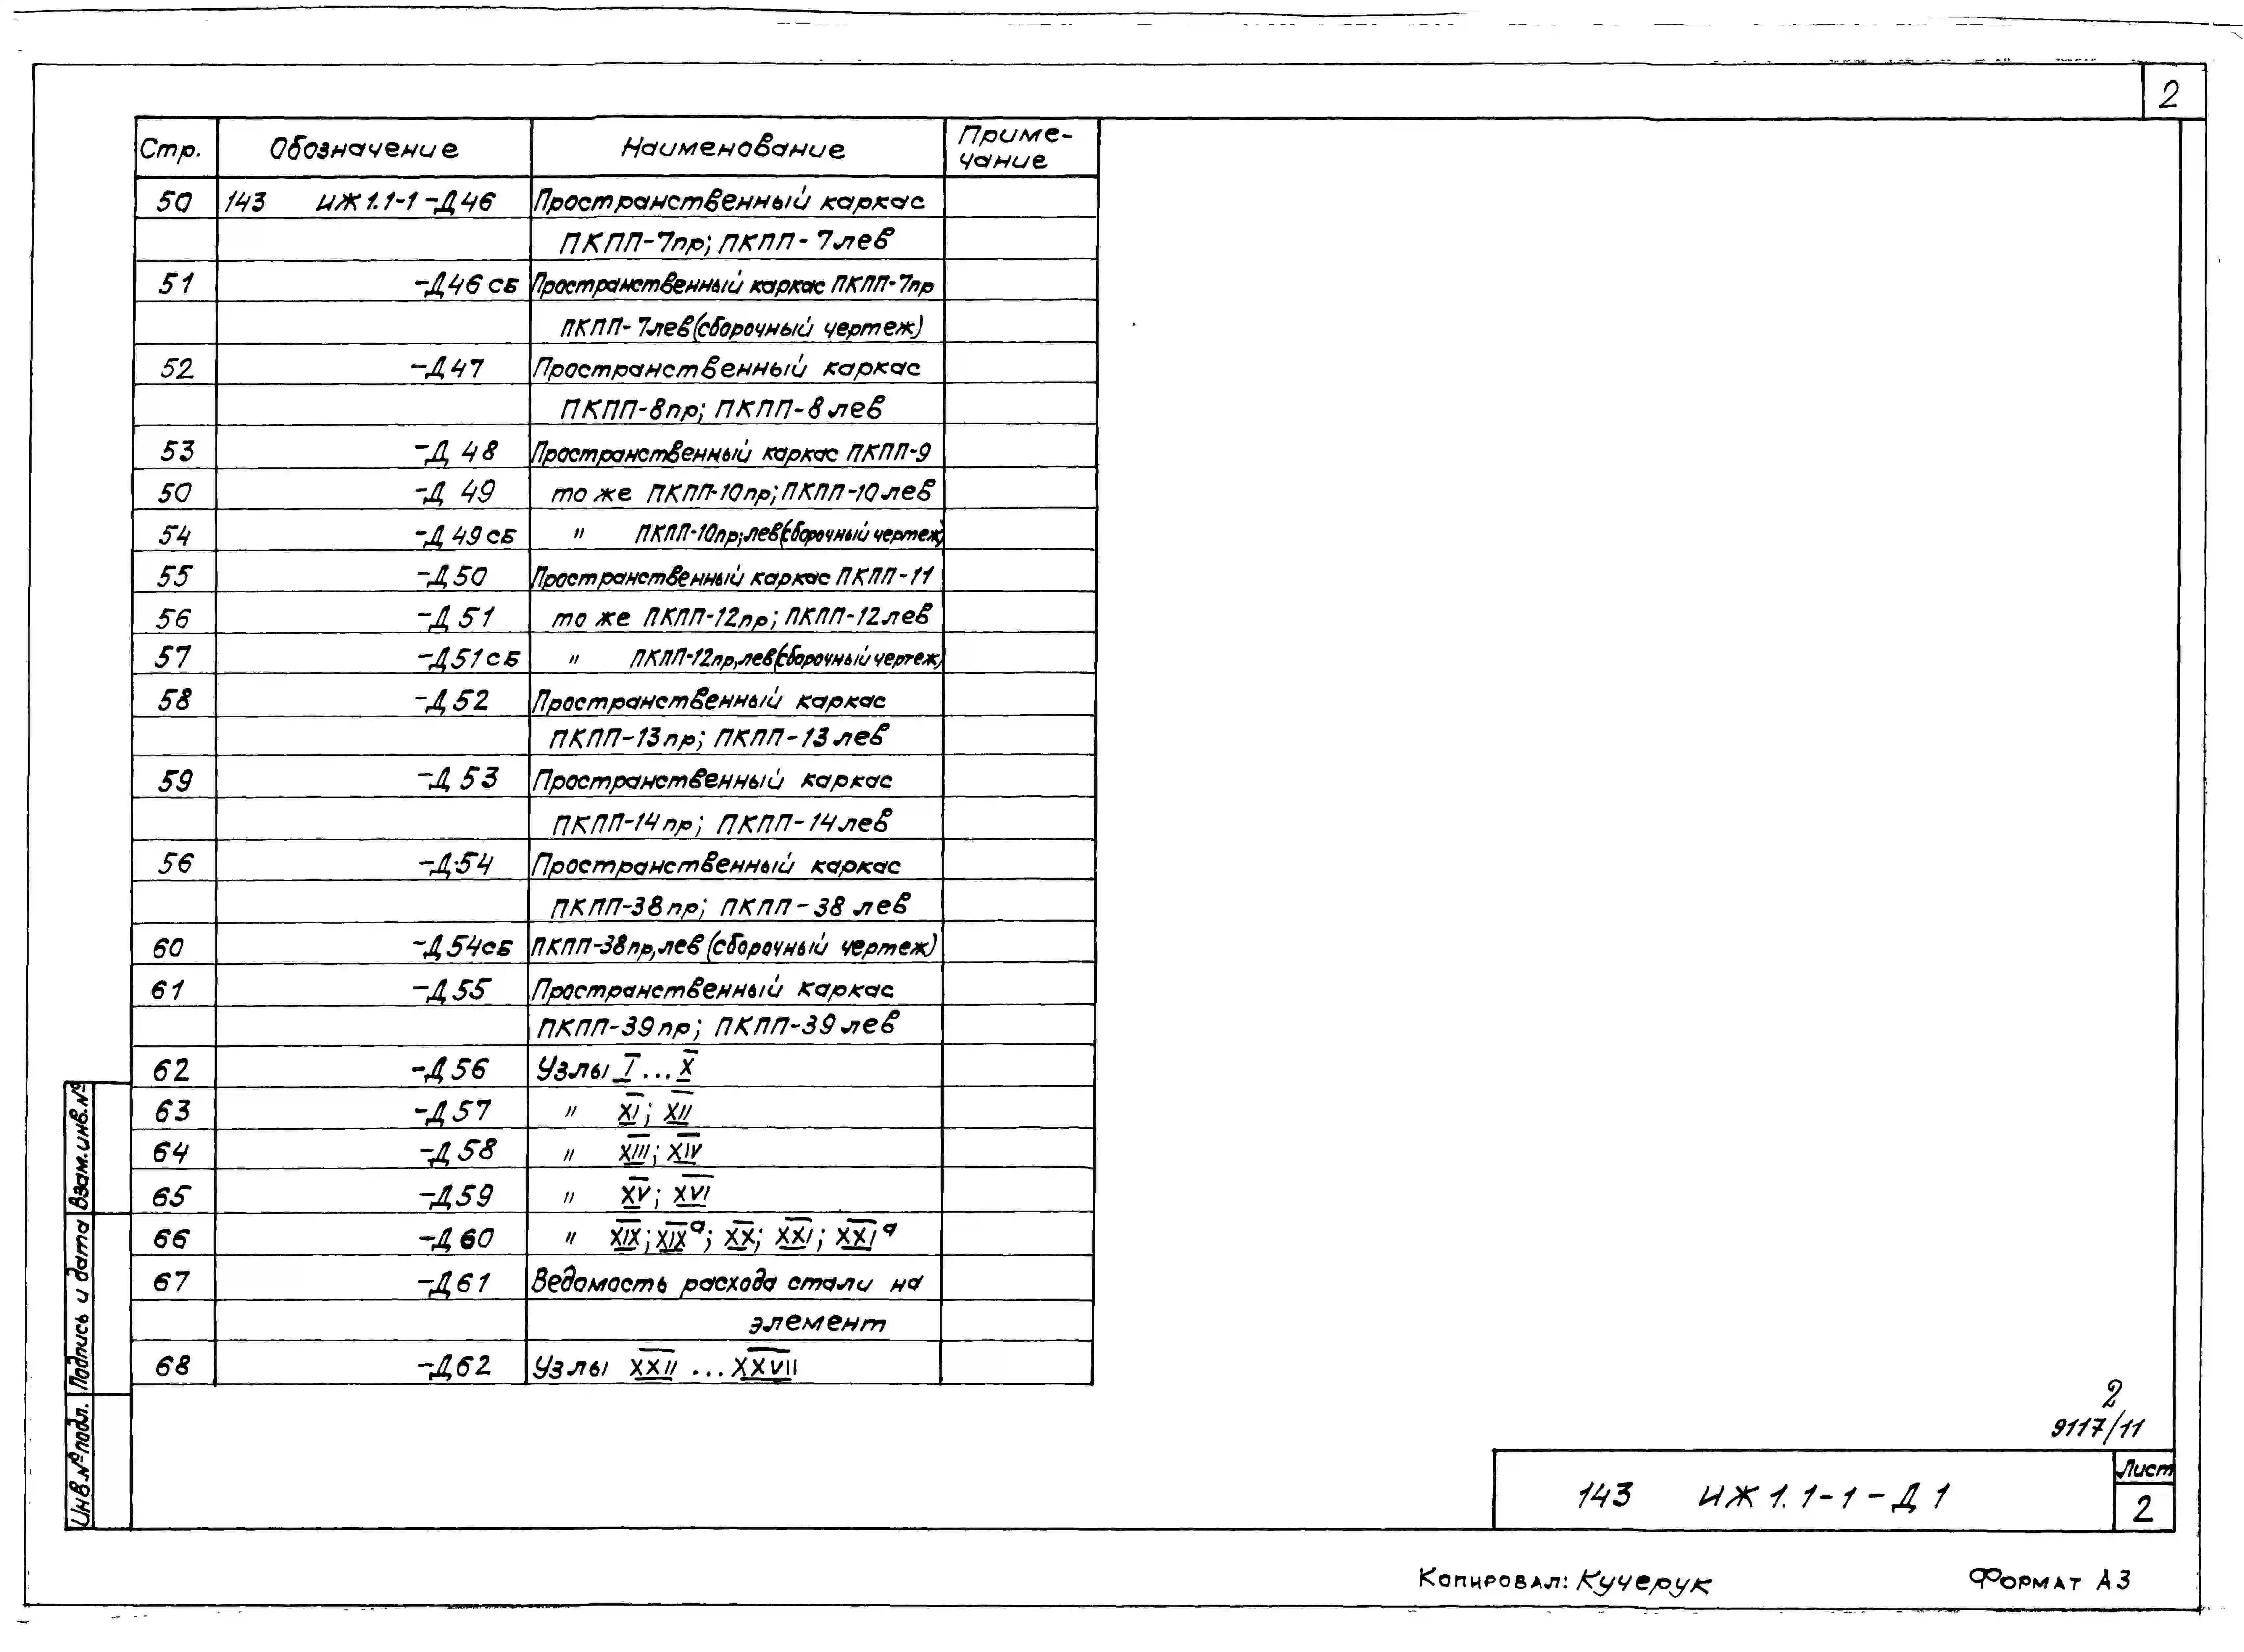 2
Стр. Обозначение Наименование Приме-
чание
50 143 ИЖ1.1-1-Д46 Пространственный каркас
ПКПП-7пр; ПКПП-7лев
51 -Д46СБ Пространственный каркас ПКПП-7пр
ПКПП-7лев(сборочный чертеж)
52 -Д47 Пространственный каркас
ПКПП-8пр; ПКПП-8лев
53 -Д 48 Пространственный каркас ПКПП-9
50 -Д 49 то же ПКПП-10пр; ПКПП-10лев
54 -Д 49СБ " ПКПП-10пр;лев(сборочный чертеж)
55 -Д50 Пространственный каркас ПКПП-11
56 -Д 51 то же ПКПП-12пр; ПКПП-12лев
57 -Д51СБ " ПКПП-12пр,лев(сборочный чертеж)
58 -Д52 Пространственный каркас
ПКПП-13пр; ПКПП-13лев
59 -Д 53 Пространственный каркас
ПКПП-14пр; ПКПП-14лев
56 -Д54 Пространственный каркас
ПКПП-38пр; ПКПП-38лев
60 -Д54СБ ПКПП-38пр,лев(сборочный чертеж)
61 -Д55 Пространственный каркас
ПКПП-39пр; ПКПП-39лев
62 -Д56 Узлы I...X
63 -Д57 " XI; XII
64 -Д58 " XIII; XIV
65 -Д59 " XV; XVI
66 -Д60 " XIX; XIXа; XX; XXI; XXIа
67 -Д61 Ведомость расхода стали на
элемент
68 -Д62 Узлы XXII ...XXVII
Взам.инв.№
Подпись и дата
Инв.№подл.
2
9117/11
143 ИЖ1.1-1-Д1
Лист
2
Копировал: Кучерук Формат А3